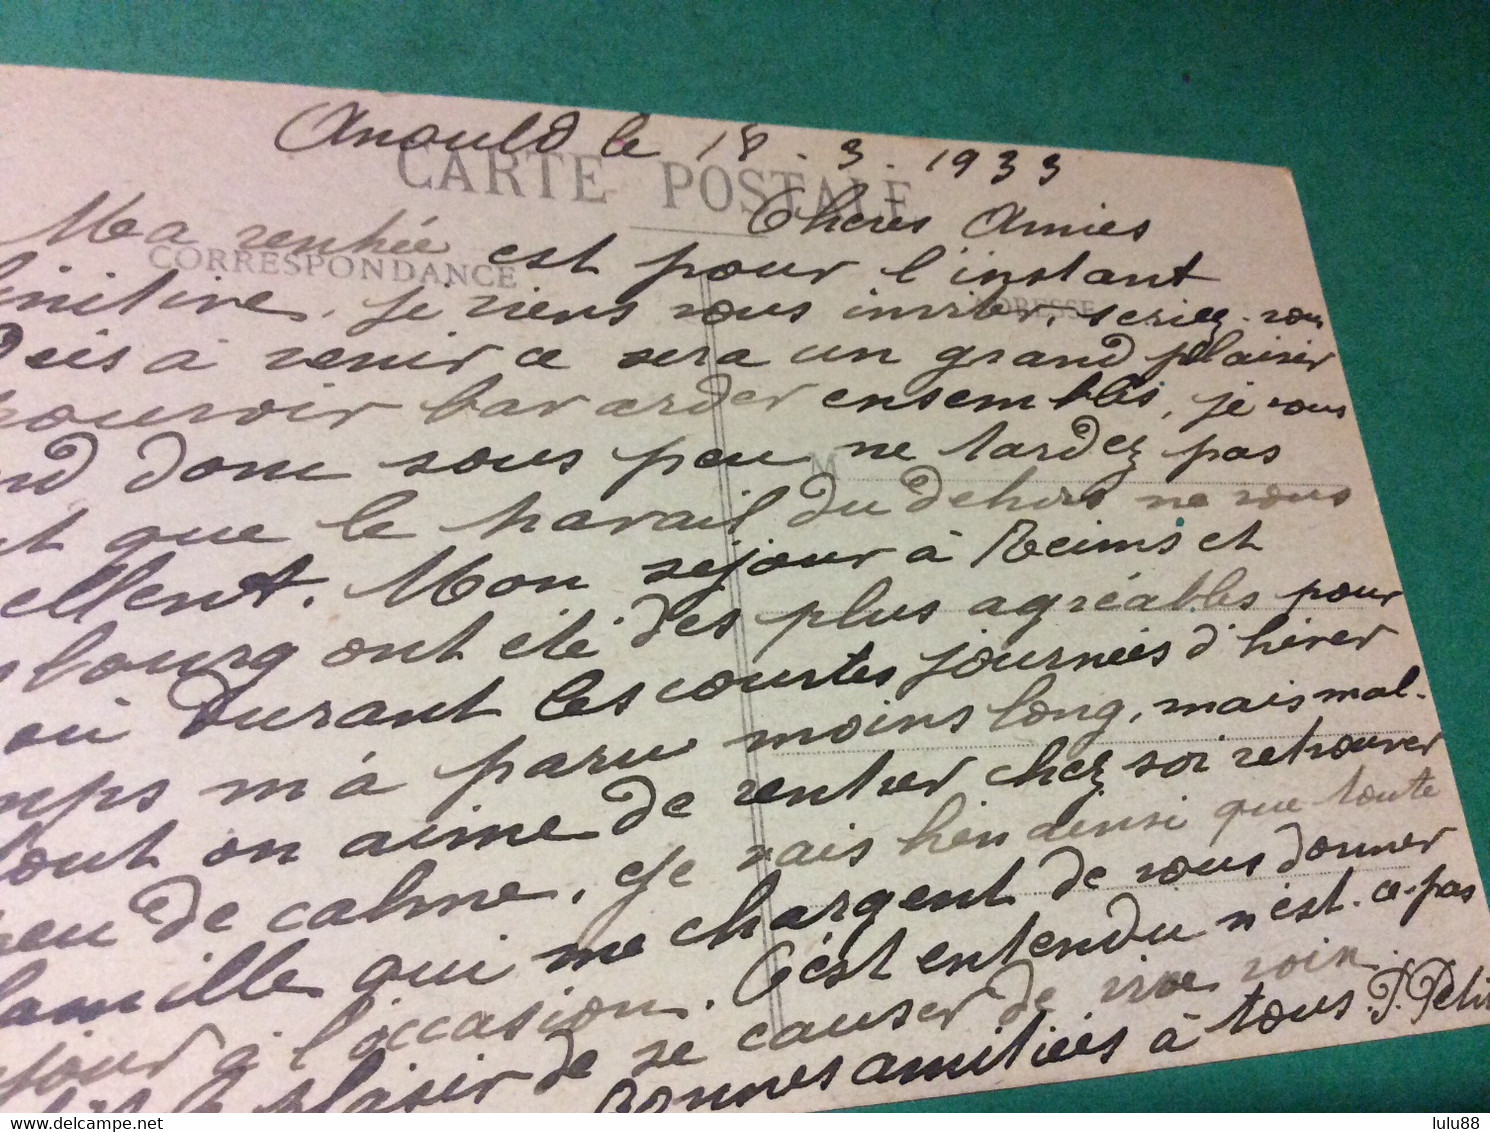 Anould le 18.3.1933
CARTE POSTALE
Cheres Amies
CORRESPONDANCE
ADRESSE
Ma rentrée est pour l'instant
finitive. je viens vous inviter, seriez-vous
à venir ce sera un grand plaisir
pouvoir bavarder ensembles, je vous
donc sous peu ne tardez pas
M
que le travail du dehors ne vous
ellent. Mon séjour à Reims et
bourg ont été des plus agréables pour
durant les courtes journées d'hiver
mps m'a paru moins long, mais mal-
tout on aime de rentrer chez soi retrouver
peu de calme. Je vais bien ainsi que toute
famille qui me chargent de vous donner
jour à l'occasion. C'est entendu n'est-ce-pas
plaisir de se causer de vive voix.
Bonnes amitiées à tous. P. Petit
delcampe.net
lulu88